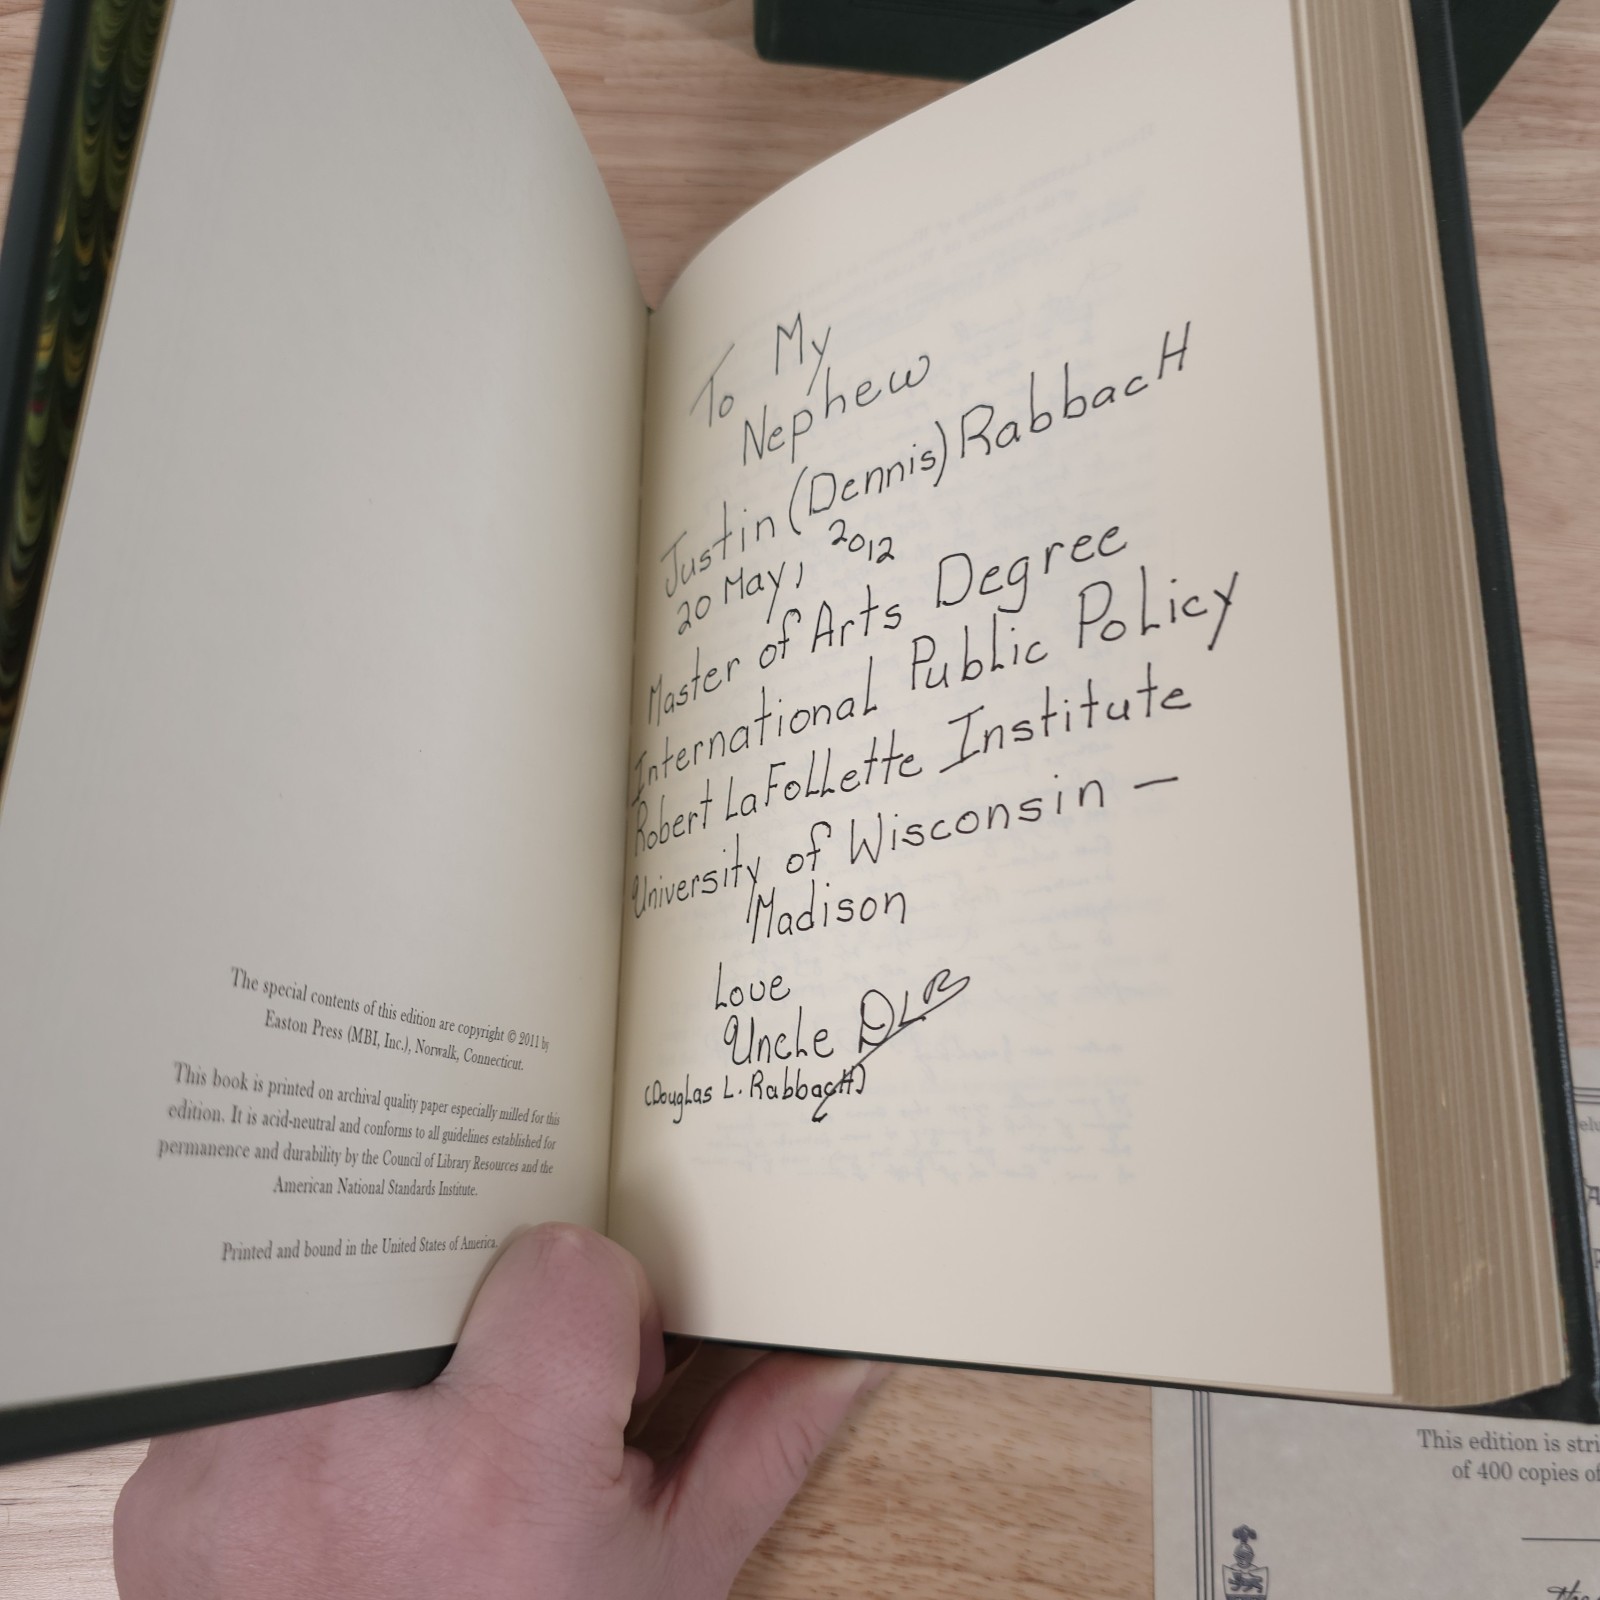 The special contents of this edition are copyright © 2011 by
Easton Press (MBI, Inc.), Norwalk, Connecticut.
This book is printed on archival quality paper especially milled for this
edition. It is acid-neutral and conforms to all guidelines established for
permanence and durability by the Council of Library Resources and the
American National Standards Institute.
Printed and bound in the United States of America.
To My
Nephew
Justin (Dennis) RabbacH
20 May, 2012
Master of Arts Degree
International Public Policy
Robert LaFollette Institute
University of Wisconsin –
Madison
Love
Uncle DLR
(Douglas L. RabbacH)
This edition is
of 400 copies of